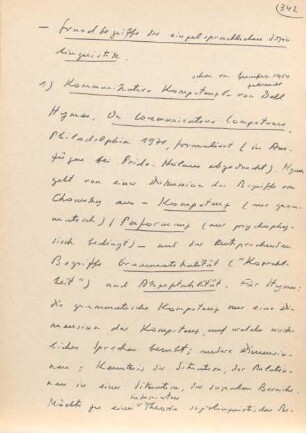 342
— Grundbegriffe der einzelsprachlichen Sozio-
linguistik.
schon von Gumperz 1964
gebraucht
1) Kommunikative Kompetenz von Dell
Hymes, On Communicative Competence,
Philadelphia 1971, formuliert (in Aus-
zügen bei Pride-Holmes abgedruckt). Hymes
geht von einer Diskussion der Begriffe von
Chomsky aus — Kompetenz (nur gram-
matisch) / Performanz (nur psychophy-
sisch bedingt) — und der entsprechenden
Begriffe Grammatikalität ("Korrekt-
heit") und Akzeptabilität. Für Hymes:
die grammatische Kompetenz nur eine Di-
mension der Kompetenz, auf welcher wirk-
liches Sprechen beruht; andere Dimensio-
nen: Kenntnis der Situation, der Relatio-
nen in einer Situation, der sozialen Bereiche.
Möchte zu einer Theorie soziolinguistischer